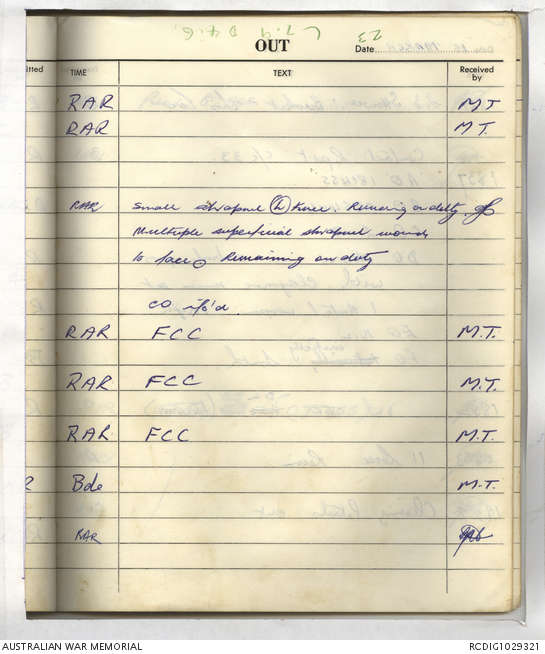 23
OUT
Date
itted
TIME
TEXT
Received by
RAR M.T
RAR M.T.
RAR Small shrapnel (L) Knee. Remaining on duty.
Multiple superficial shrapnel wounds
to face. Remaining on duty
CO info'd.
RAR FCC M.T.
RAR FCC M.T.
RAR FCC M.T.
Bde M.T.
RAR
AUSTRALIAN WAR MEMORIAL
RCDIG1029321